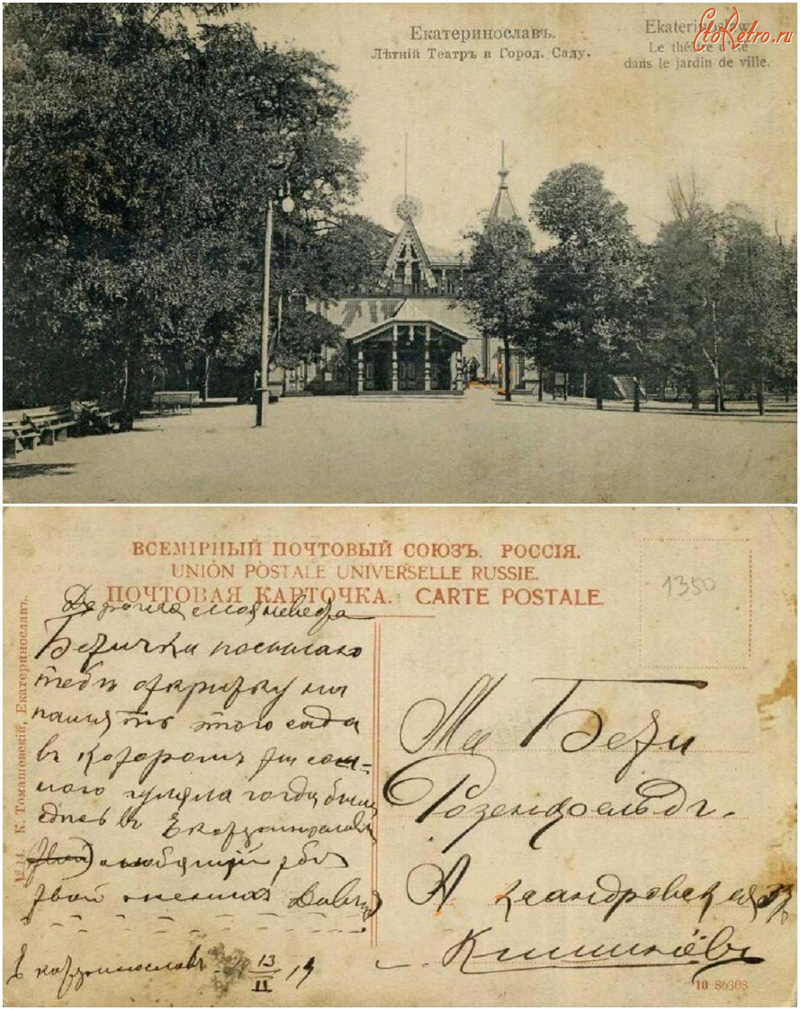 Екатеринославъ.
Лѣтній Театръ в Город. Саду.
Ekaterinoslaw.
Le théâtre d'été
dans le jardin de ville.
EtoRetro.ru
ВСЕМІРНЫЙ ПОЧТОВЫЙ СОЮЗЪ. РОССІЯ.
UNION POSTALE UNIVERSELLE RUSSIE.
ПОЧТОВАЯ КАРТОЧКА. CARTE POSTALE.
1350
Дорогая моя невеста
Бетички посылаю
тебѣ открытку на
память этого сада
в котором
гуляла когда была
здесь в Екатеринославе
любящий тебя
твой жених Давид
Екатеринослав 13/II 14
Бети
Розенфельдъ.
Александровская
Кишинёвъ
№ 14. К. Томашевскій, Екатеринославъ.
10 86308